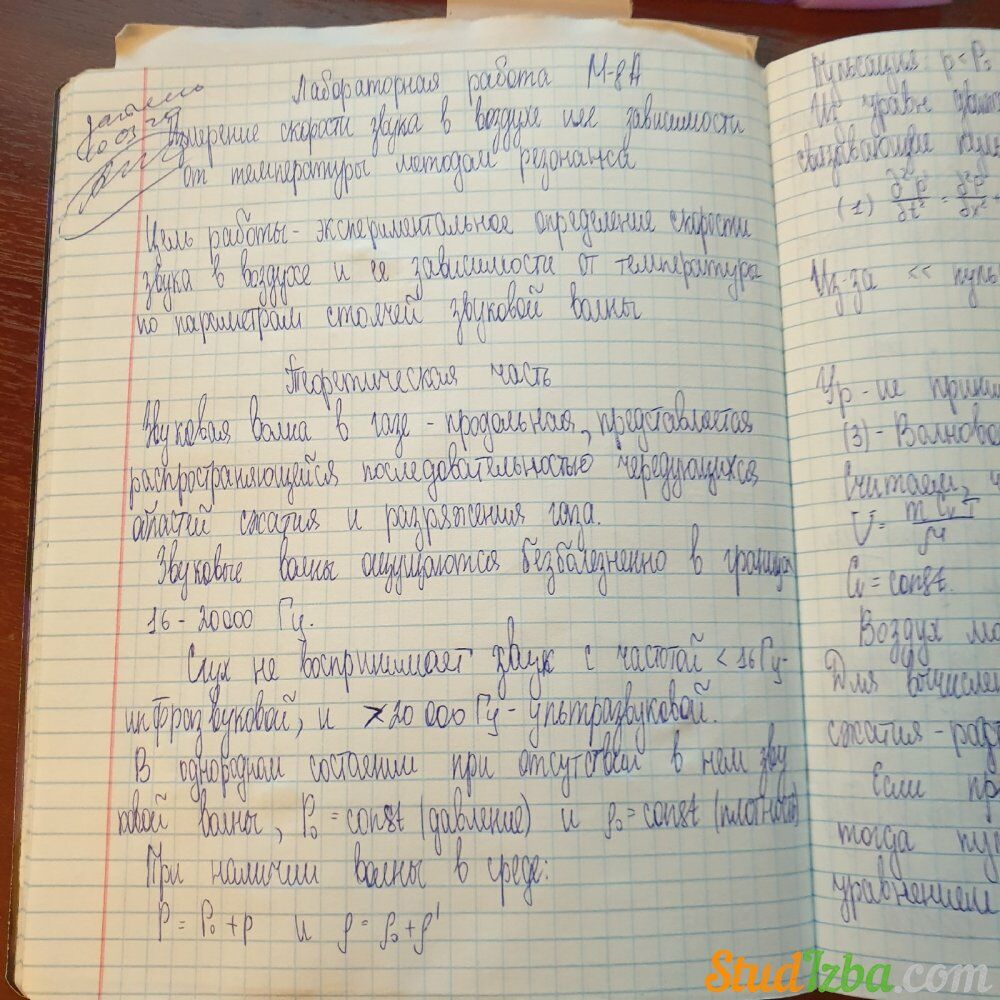 Лабораторная работа М-8А
Измерение скорости звука в воздухе и ее зависимости
от температуры методом резонанса
Цель работы - экспериментальное определение скорости
звука в воздухе и ее зависимости от температуры
по параметрам стоячей звуковой волны
Теоретическая часть
Звуковая волна в газе - продольная, представляется
распространяющейся последовательностью чередующихся
областей сжатия и разряжения газа.
Звуковые волны ощущаются безболезненно в границах
16 - 20000 Гц.
Слух не воспринимает звук с частотой < 16 Гц -
инфразвуковой, и > 20 000 Гц - ультразвуковой.
В однородном состоянии при отсутствии в нем зву
ковой волны, P₀ = const (давление) и ρ₀ = const (плотность)
При наличии волны в среде:
P = P₀ + p и ρ = ρ₀ + ρ'
Пульсация: p = P₀
Из уравн
связывающие
(1) ∂²p/∂t² = ∂²p/∂x² +
Из-за <<
Ур-ие
(3) - Волново
Считаем,
U = m Cᵥ T / μ
Cᵥ = const.
Воздух
Для вычислен
сжатия -
Если пр
тогда
уравнением
StudIzba.com